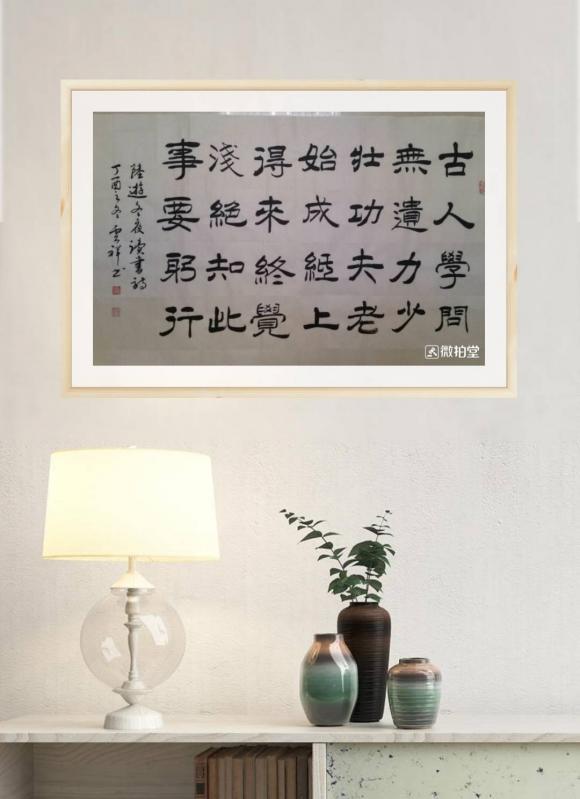 古人學問
無遺力少
壯功夫老
始成紙上
得來終覺
淺絕知此
事要躬行
陸遊冬夜讀書詩
丁酉之冬雲祥书
微拍堂